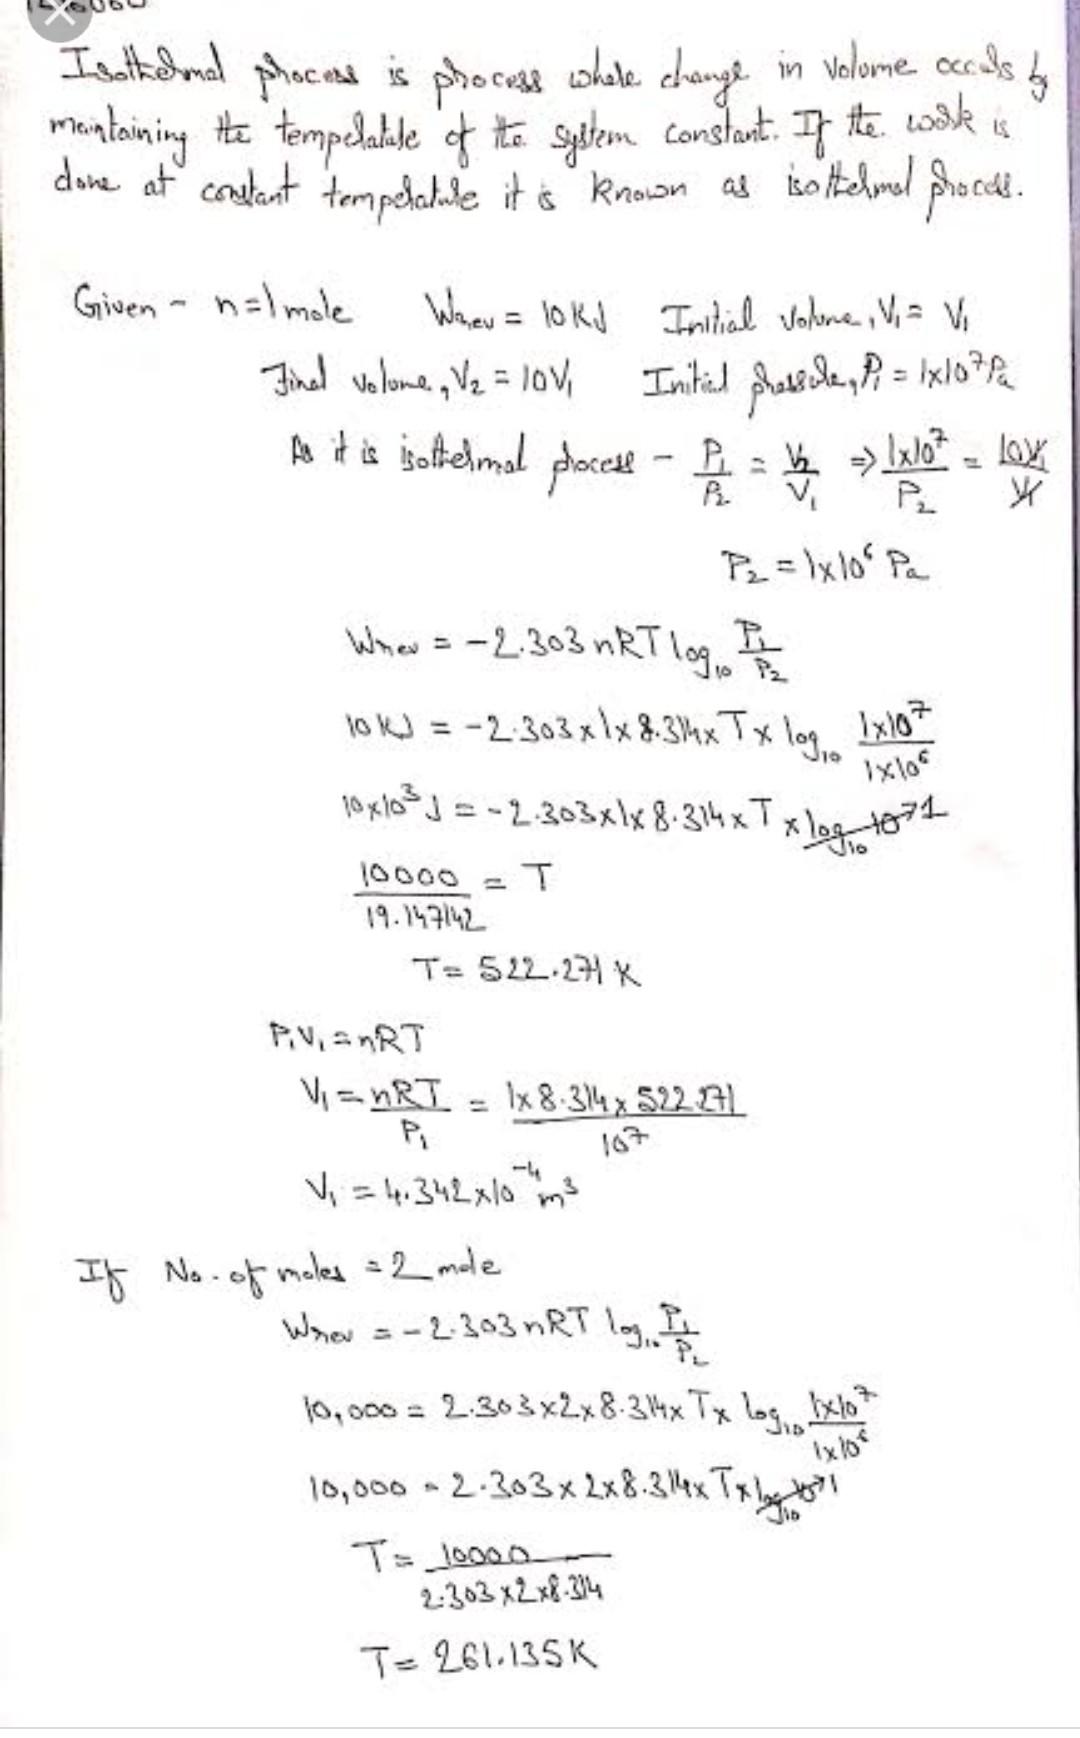 Isothermal process is process where change in volume occurs by
maintaining the temperature of the system constant. If the work is
done at constant temperature it is known as isothermal process.
Given - n=1 mole Wrev = 10 KJ Initial volume, V₁ = V₁
Final volume, V₂ = 10V₁ Initial pressure, P₁ = 1x10⁷ Pa
As it is isothermal process - P₁/P₂ = V₂/V₁ => 1x10⁷/P₂ = 10V₁/V₁
P₂ = 1x10⁶ Pa
Wrev = -2.303 nRT log₁₀ P₁/P₂
10 KJ = -2.303 x 1 x 8.314 x T x log₁₀ 1x10⁷/1x10⁶
10x10³ J = -2.303x1x 8.314 x T x log₁₀ 10 1
10000/19.147142 = T
T = 522.271 K
P₁V₁ = nRT
V₁ = nRT/P₁ = 1x 8.314 x 522.271/10⁷
V₁ = 4.342x10⁻⁴ m³
If No. of moles = 2 mole
Wrev = -2.303 nRT log₁₀ P₁/P₂
10,000 = 2.303x2x 8.314x Tx log₁₀ 1x10⁷/1x10⁶
10,000 = 2.303 x 2x8.314x Tx log₁₀ 10 1
T = 10000/2.303 x2 x8.314
T = 261.135K